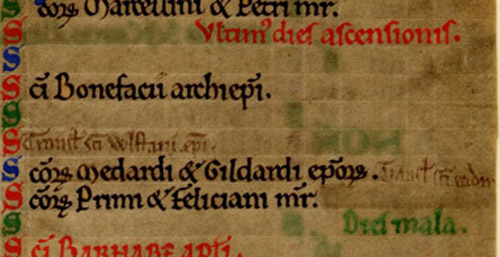 S coꝝ Marcellini & Petri mr̅.
S Vltim' dies ascensionis.
S
S c̅i Bonefacii archiep̅i.
S
S Transl' sc̅i Wlstani ep̅i.
S co̅ꝝ Medardi & Gildardi ep̅oꝝ. Transl' sc̅i
S co̅ꝝ Primi & Feliciani mr̅.
S Dies mala.
S c̅i BARNABE AP̅LI.